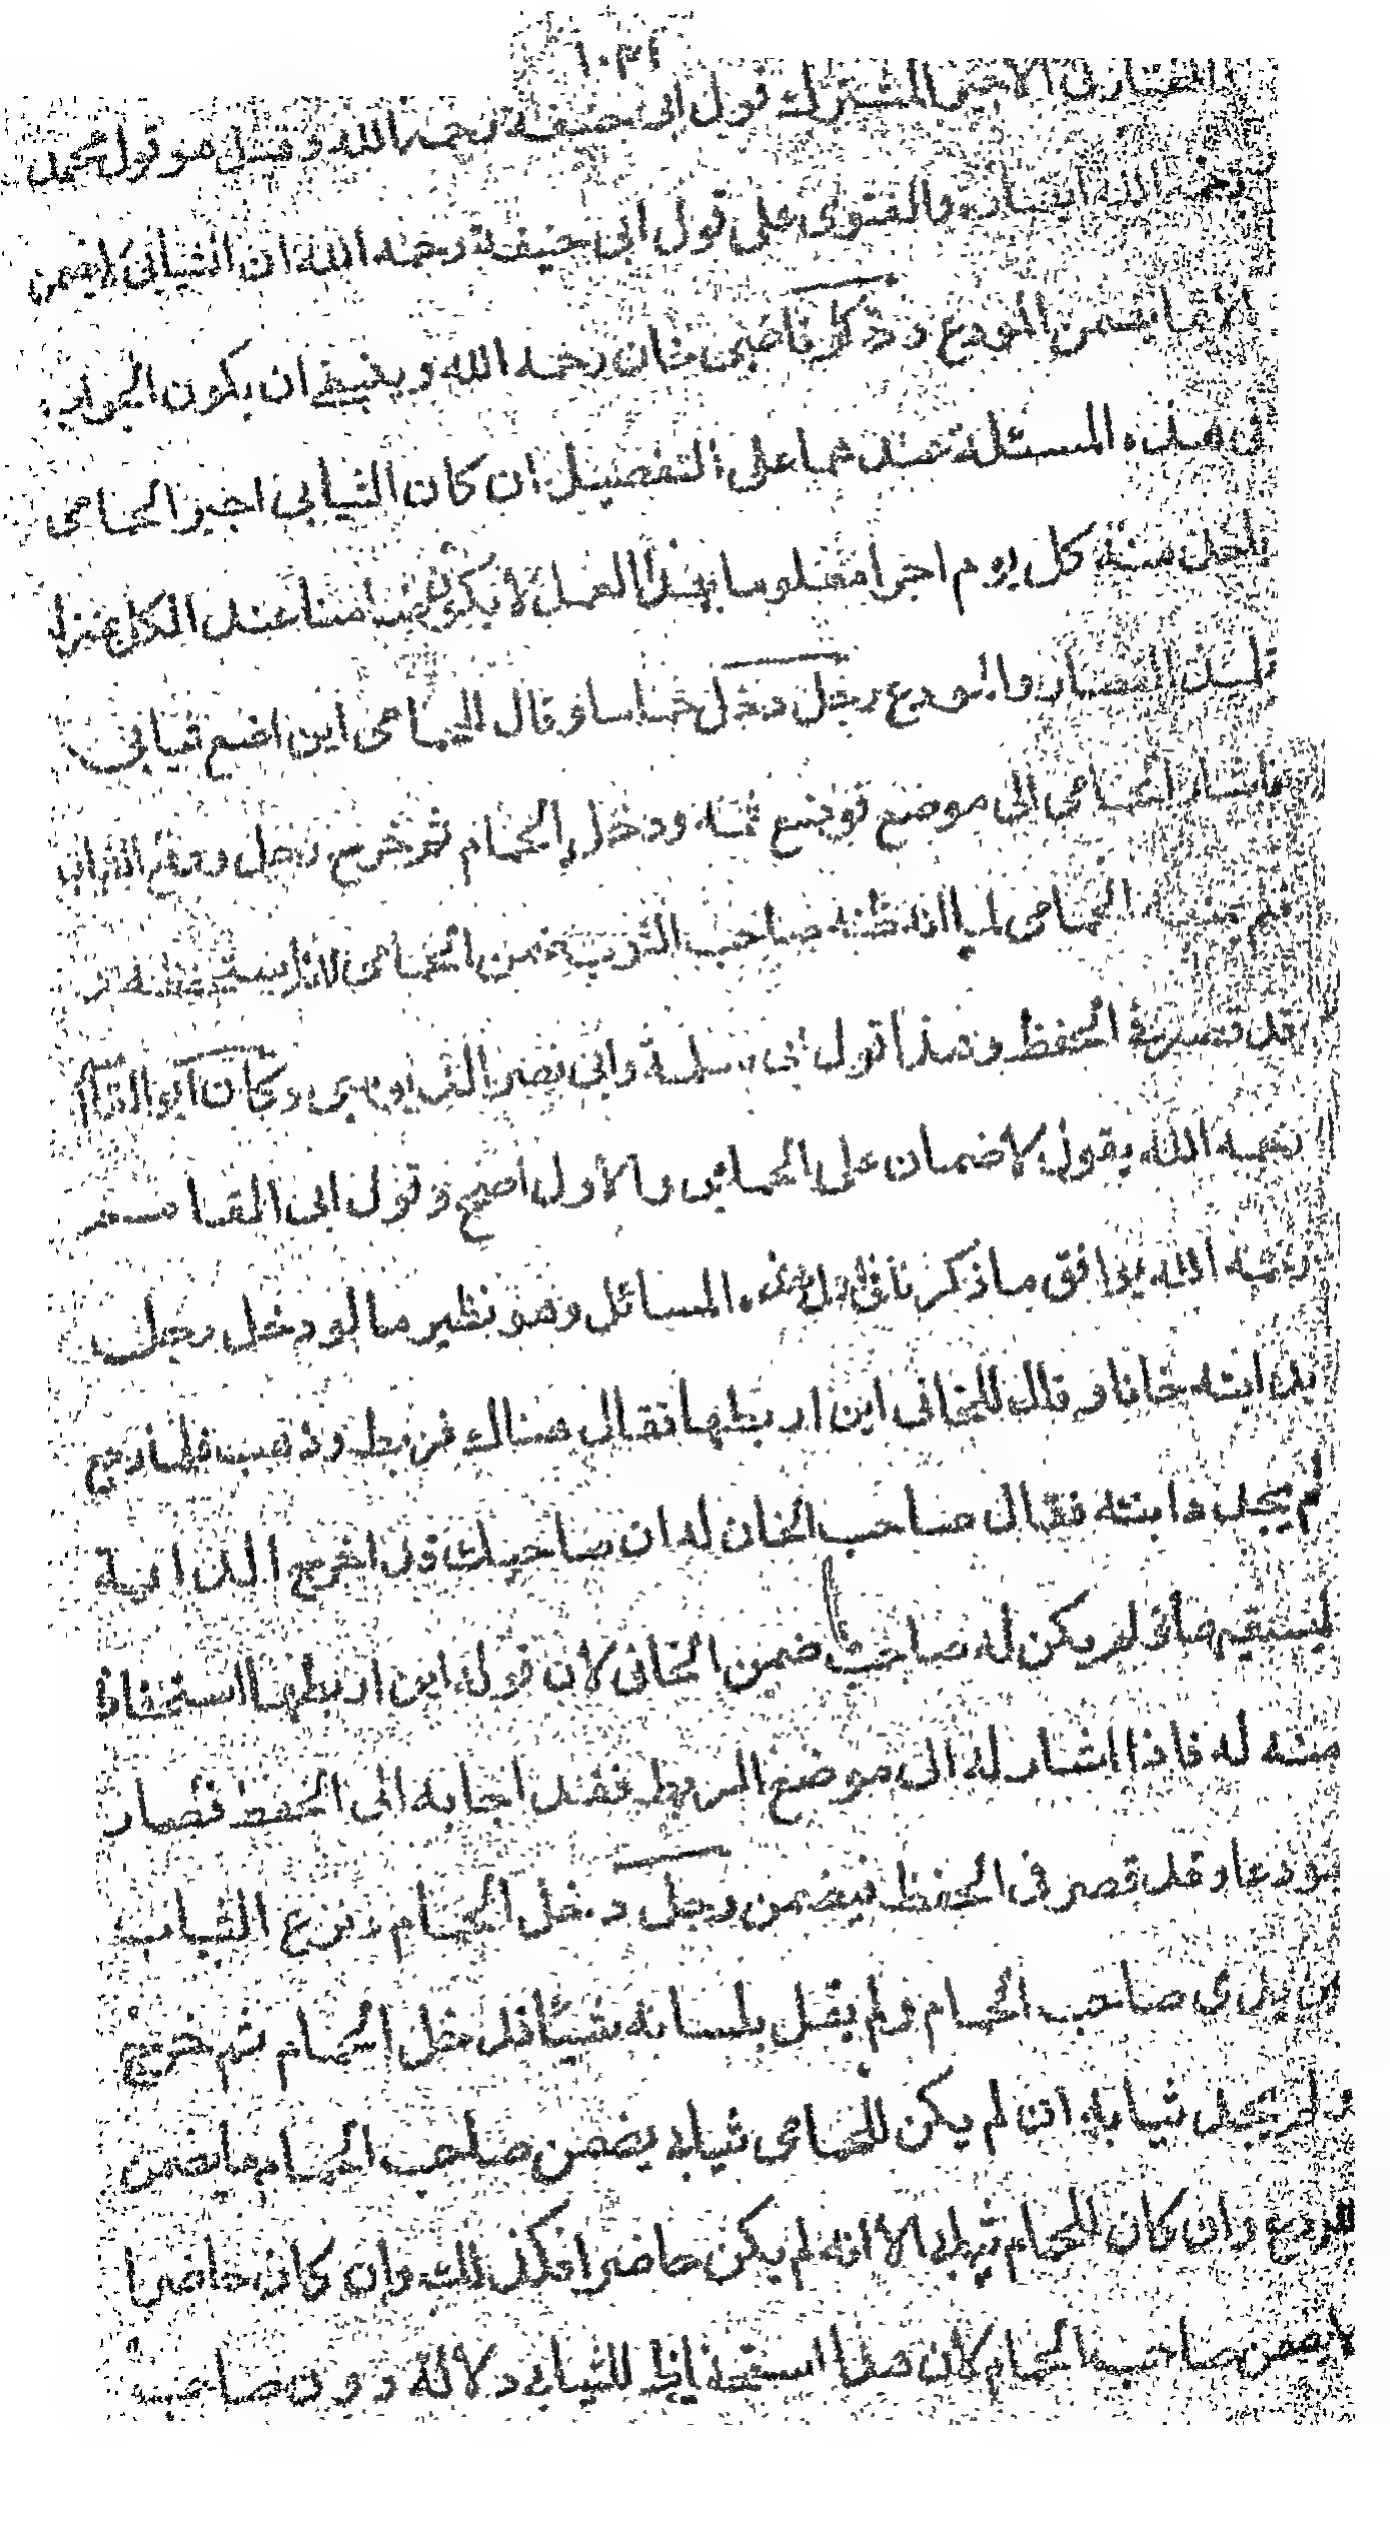 ١٠٣٢
المختار فى الاجير المشترك قول ابى حنيفة رحمه الله وقيل هو قول محمد
رحمه الله ايضا والفتوى على قول ابى حنيفة رحمه الله ان الثيابى لا يضمن
الا ما يضمن المودع وذكر قاضى خان رحمه الله وينبغى ان يكون الجواب
فى هذه المسئلة عندهما على التفصيل ان كان الثيابى اجير الحمامى
ياخذ منه كل يوم اجرا معلوما بهذا العمل لا يكون ضامنا عند الكل بمنزلة
تلميذ القصار والمودع رجل دخل حماما وقال للحمامى اين اضع ثيابى
فاشار الحمامى الى موضع فوضع ثمه ودخل الحمام ثم خرج رجل ورفع الثياب
فلم يمنعه الحمامى لما انه ظنه صاحب الثوب ضمن الحمامى لانه
قد قصر فى الحفظ وهذا قول ابن سلمة وابى نصر الدبوسى وكان ابو القاسم
رحمه الله يقول لا ضمان على الحمامى والاول اصح وقول ابى القاسم
رحمه الله يوافق ما ذكرنا قبل هذه المسائل وهو نظير ما لو دخل رجل
بدابته خانا وقال للخانى اين اربطها فقال هناك فربط وذهب فلما رجع
لم يجد دابته فقال صاحب الخان له ان صاحبك قد اخرج الدابة
ليسقيها ولم يكن له صاحب ضمن الخانى لان قوله اين اربطها استحفاظ
منه له فاذا اشار له الى موضع المربط فقد اجابه الى الحفظ فصار
مودعا وقد قصر فى الحفظ فيضمن رجل دخل الحمام ونزع الثياب
بين يدى صاحب الحمام ولم يقل بلسانه شيئا فدخل الحمام ثم خرج
ولم يجد ثيابه ان لم يكن للحمامى ثيابى يضمن صاحب الحمام ما يضمن
المودع وان كان للحمام ثيابى الا انه لم يكن حاضرا فكذلك وان كان حاضرا
لا يضمن صاحب الحمام لان هذا استحفاظ للثيابى دلالة دون صاحب